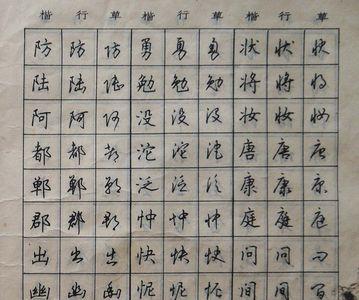 楷 行 草 楷 行 草 楷 行 草
防 防 防 勇 勇 勇 状 状 状
陆 陆 陆 勉 勉 勉 将 将 将
阿 阿 阿 没 没 没 妆 妆 妆
都 都 都 沱 沱 沱 唐 唐 唐
郸 郸 郸 泛 泛 泛 康 康 康
郡 郡 郡 忡 忡 忡 庭 庭 庭
出 出 出 快 快 快 问 问 问
幽 幽 幽 怩 怩 怩 间 间 间